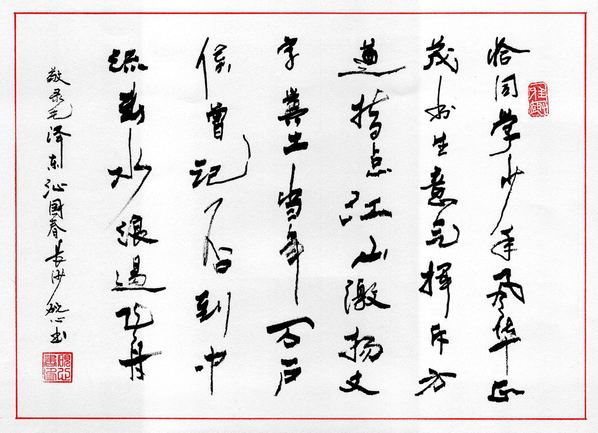 恰同学少年风华正
茂书生意气挥斥方
遒指点江山激扬文
字粪土当年万户
侯曾记否到中
流击水浪遏飞舟
敬录毛泽东沁园春长沙 书